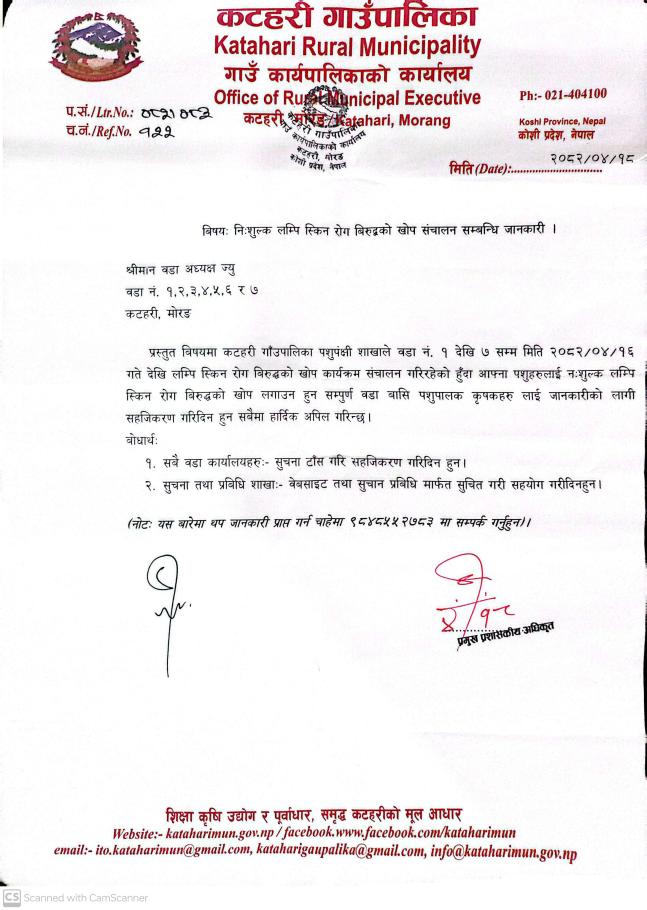 कटहरी गाउँपालिका
Katahari Rural Municipality
गाउँ कार्यपालिकाको कार्यालय
Office of Rural Municipal Executive
कटहरी, मोरङ/Katahari, Morang
कटहरी गाउँपालिका
गाउँ कार्यपालिकाको कार्यालय
कटहरी, मोरङ
कोशी प्रदेश, नेपाल
Ph:- 021-404100
Koshi Province, Nepal
कोशी प्रदेश, नेपाल
प.सं./Ltr.No.: ०८१/०८२
च.नं./Ref.No. १२२
मिति (Date): २०८२/०४/१८
विषयः निःशुल्क लम्पि स्किन रोग बिरुद्वको खोप संचालन सम्बन्धि जानकारी ।
श्रीमान वडा अध्यक्ष ज्यु
वडा नं. १,२,३,४,५,६ र ७
कटहरी, मोरङ
प्रस्तुत विषयमा कटहरी गाँउपालिका पशुपंक्षी शाखाले वडा नं. १ देखि ७ सम्म मिति २०८२/०४/१६
गते देखि लम्पि स्किन रोग बिरुद्धको खोप कार्यक्रम संचालन गरिरहेको हुँदा आफ्ना पशुहरुलाई नःशुल्क लम्पि
स्किन रोग बिरुद्धको खोप लगाउन हुन सम्पुर्ण वडा बासि पशुपालक कृषकहरु लाई जानकारीको लागी
सहजिकरण गरिदिन हुन सबैमा हार्दिक अपिल गरिन्छ।
बोधार्थः
१. सबै वडा कार्यालयहरुः- सुचना टाँस गरि सहजिकरण गरिदिन हुन।
२. सुचना तथा प्रबिधि शाखाः- वेबसाइट तथा सुचान प्रबिधि मार्फत सुचित गरी सहयोग गरीदिनहुन।
(नोटः यस बारेमा थप जानकारी प्राप्त गर्न चाहेमा ९८४८५५२७८३ मा सम्पर्क गर्नुहुन)।
४/१८
प्रमुख प्रशासकीय अधिकृत
शिक्षा कृषि उद्योग र पूर्वाधार, समृद्ध कटहरीको मूल आधार
Website:- kataharimun.gov.np / facebook.www.facebook.com/kataharimun
email:- ito.kataharimun@gmail.com, kataharigaupalika@gmail.com, info@kataharimun.gov.np
CS Scanned with CamScanner